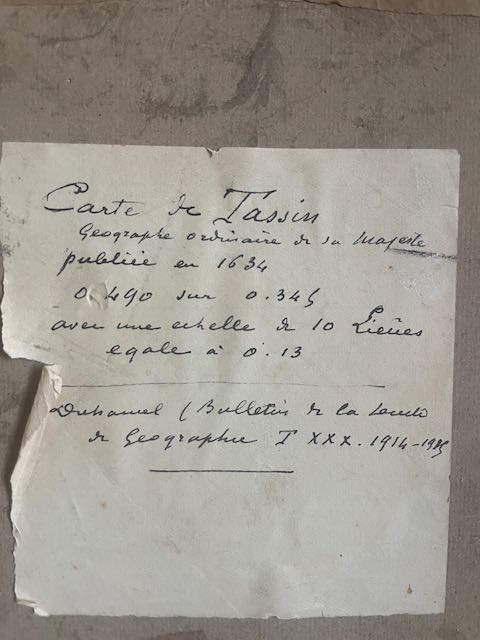 Carte de Tassin
Geographe ordinaire de sa Majeste
publiée en 1634
0.490 sur 0.345
avec une echelle de 10 Lieües
egale à 0.13
Duhamel (Bulletin de la
de Geographie T XXX. 1914-1915